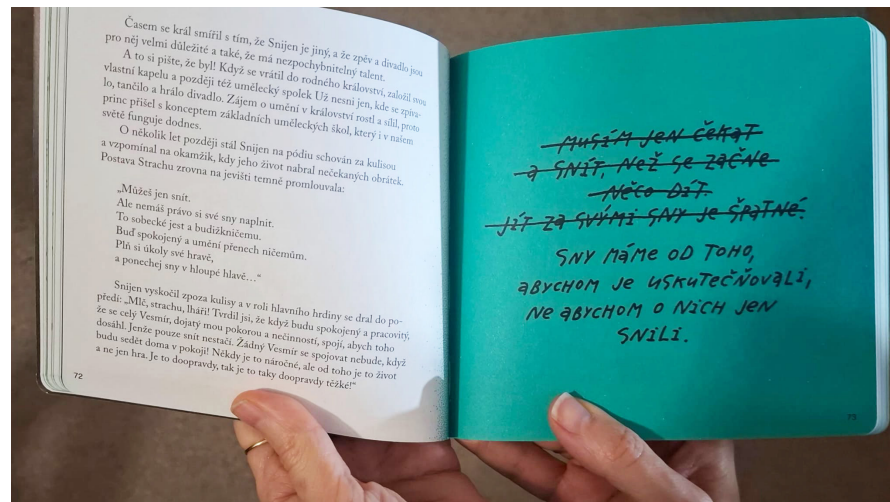 Časem se král smířil s tím, že Snijen je jiný, a že zpěv a divadlo jsou
pro něj velmi důležité a také, že má nezpochybnitelný talent.
A to si pište, že byl! Když se vrátil do rodného království, založil svou
vlastní kapelu a později též umělecký spolek Už nesni jen, kde se zpíva-
lo, tančilo a hrálo divadlo. Zájem o umění v království rostl a sílil, proto
princ přišel s konceptem základních uměleckých škol, který i v našem
světě funguje dodnes.
O několik let později stál Snijen na pódiu schován za kulisou
a vzpomínal na okamžik, kdy jeho život nabral nečekaných obrátek.
Postava Strachu zrovna na jevišti temně promlouvala:
„Můžeš jen snít.
Ale nemáš právo si své sny naplnit.
To sobecké jest a budižkničemu.
Buď spokojený a umění přenech ničemům.
Plň si úkoly své hravě,
a ponechej sny v hloupé hlavě…“
Snijen vyskočil zpoza kulisy a v roli hlavního hrdiny se dral do po-
předí: „Mlč, strachu, lháři! Tvrdil jsi, že když budu spokojený a pracovitý,
že se celý Vesmír, dojatý mou pokorou a nečinností, spojí, abych toho
dosáhl. Jenže pouze snít nestačí. Žádný Vesmír se spojovat nebude, když
budu sedět doma v pokoji! Někdy je to náročné, ale od toho je to život
a ne jen hra. Je to doopravdy, tak je to taky doopravdy těžké!“
72
MUSÍM JEN ČEKAT
A SNÍT, NEŽ SE ZAČNE
NĚCO DÍT.
JÍT ZA SVÝMI SNY JE ŠPATNÉ.
SNY MÁME OD TOHO,
ABYCHOM JE USKUTEČŇOVALI,
NE ABYCHOM O NICH JEN
SNILI.
73